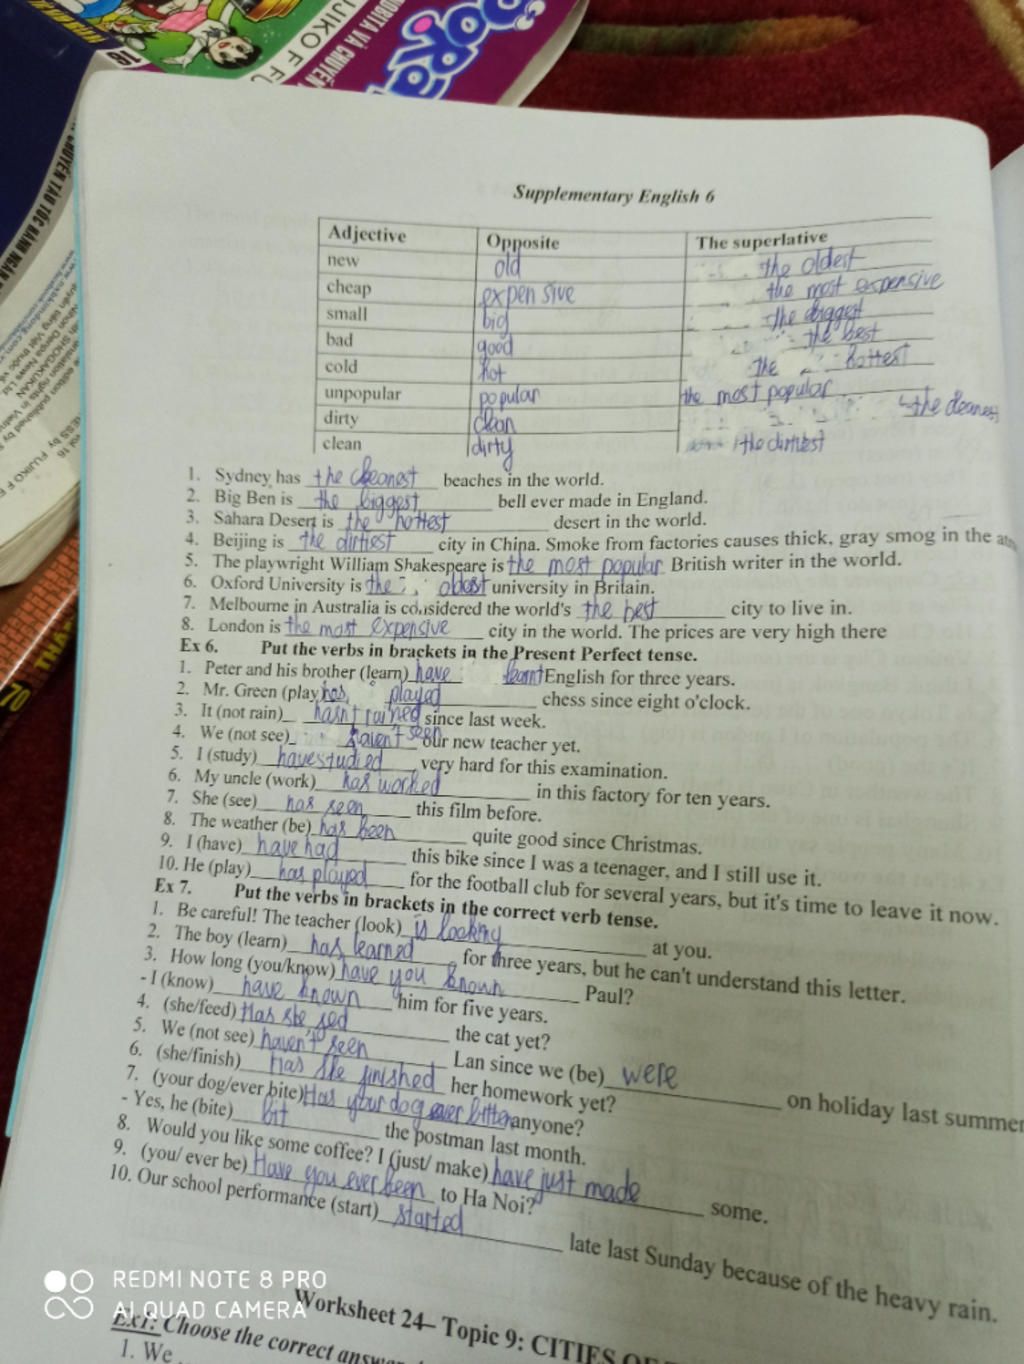 16
FUJIKO F FU
NOBITA VÀ CHUYẾN
CHUYẾN TÀU TỐC HÀNH NGÂN
FUJIKO F
70
Supplementary English 6
Adjective Opposite The superlative
new old the oldest
cheap expensive the most expensive
small big the biggest
bad good the best
cold hot the hottest
unpopular popular the most popular
dirty clean the cleanest
clean dirty the dirtiest
1. Sydney has the cleanest beaches in the world.
2. Big Ben is the biggest bell ever made in England.
3. Sahara Desert is the hottest desert in the world.
4. Beijing is the dirtiest city in China. Smoke from factories causes thick, gray smog in the
5. The playwright William Shakespeare is the most popular British writer in the world.
6. Oxford University is the oldest university in Britain.
7. Melbourne in Australia is considered the world's the best city to live in.
8. London is the most expensive city in the world. The prices are very high there
Ex 6. Put the verbs in brackets in the Present Perfect tense.
1. Peter and his brother (learn) have learnt English for three years.
2. Mr. Green (play) has played chess since eight o'clock.
3. It (not rain) hasn't rained since last week.
4. We (not see) haven't seen our new teacher yet.
5. I (study) have studied very hard for this examination.
6. My uncle (work) has worked in this factory for ten years.
7. She (see) has seen this film before.
8. The weather (be) has been quite good since Christmas.
9. I (have) have had this bike since I was a teenager, and I still use it.
10. He (play) has played for the football club for several years, but it's time to leave it now.
Ex 7. Put the verbs in brackets in the correct verb tense.
1. Be careful! The teacher (look) is looking at you.
2. The boy (learn) has learned for three years, but he can't understand this letter.
3. How long (you/know) have you known Paul?
- I (know) have known him for five years.
4. (she/feed) Has she fed the cat yet?
5. We (not see) haven't seen Lan since we (be) were on holiday last summer
6. (she/finish) Has she finished her homework yet?
7. (your dog/ever bite) Has your dog ever bitten anyone?
- Yes, he (bite) bit the postman last month.
8. Would you like some coffee? I (just/ make) have just made some.
9. (you/ ever be) Have you ever been to Ha Noi?
10. Our school performance (start) started late last Sunday because of the heavy rain.
Worksheet 24– Topic 9: CITIES OF
Ex1: Choose the correct answer
1. We
REDMI NOTE 8 PRO
AI QUAD CAMERA